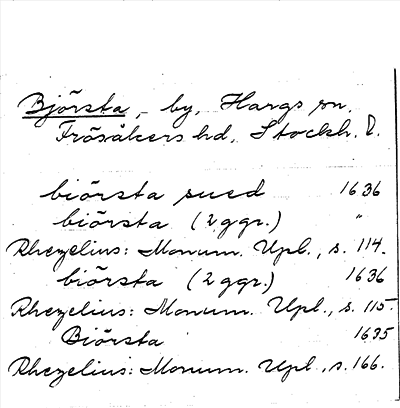 Björsta, - by, Hargs sn.
Frösåkers hd, Stockh. l.
biörsta sued 1636
biörsta (2 ggr.) "
Rhezelius: Monum. Upl., s. 114.
biörsta (2 ggr.) 1636
Rhezelius: Monum. Upl., s. 115.
Biörsta 1635
Rhezelius: Monum. Upl., s. 166.